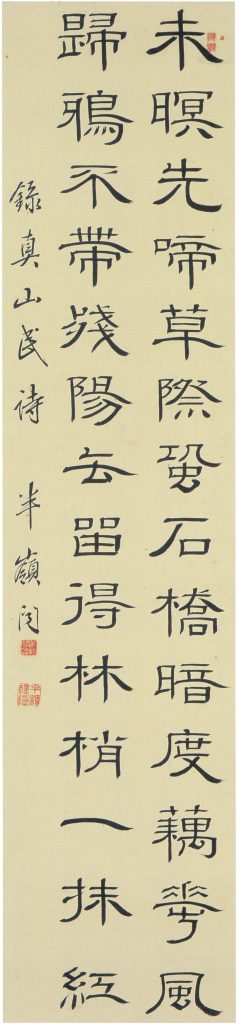 未暝先啼草際蛩石橋暗度藕花風
歸鴉不帶殘陽去留得林梢一抹紅
錄真山民詩 半嶺